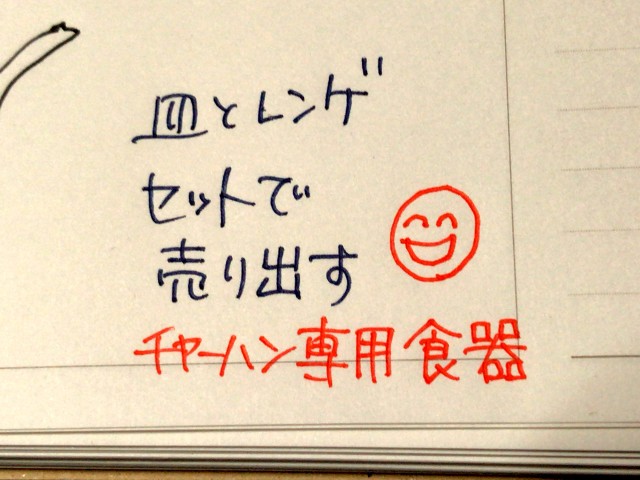 皿とレンゲ
セットで
売り出す
チャーハン専用食器